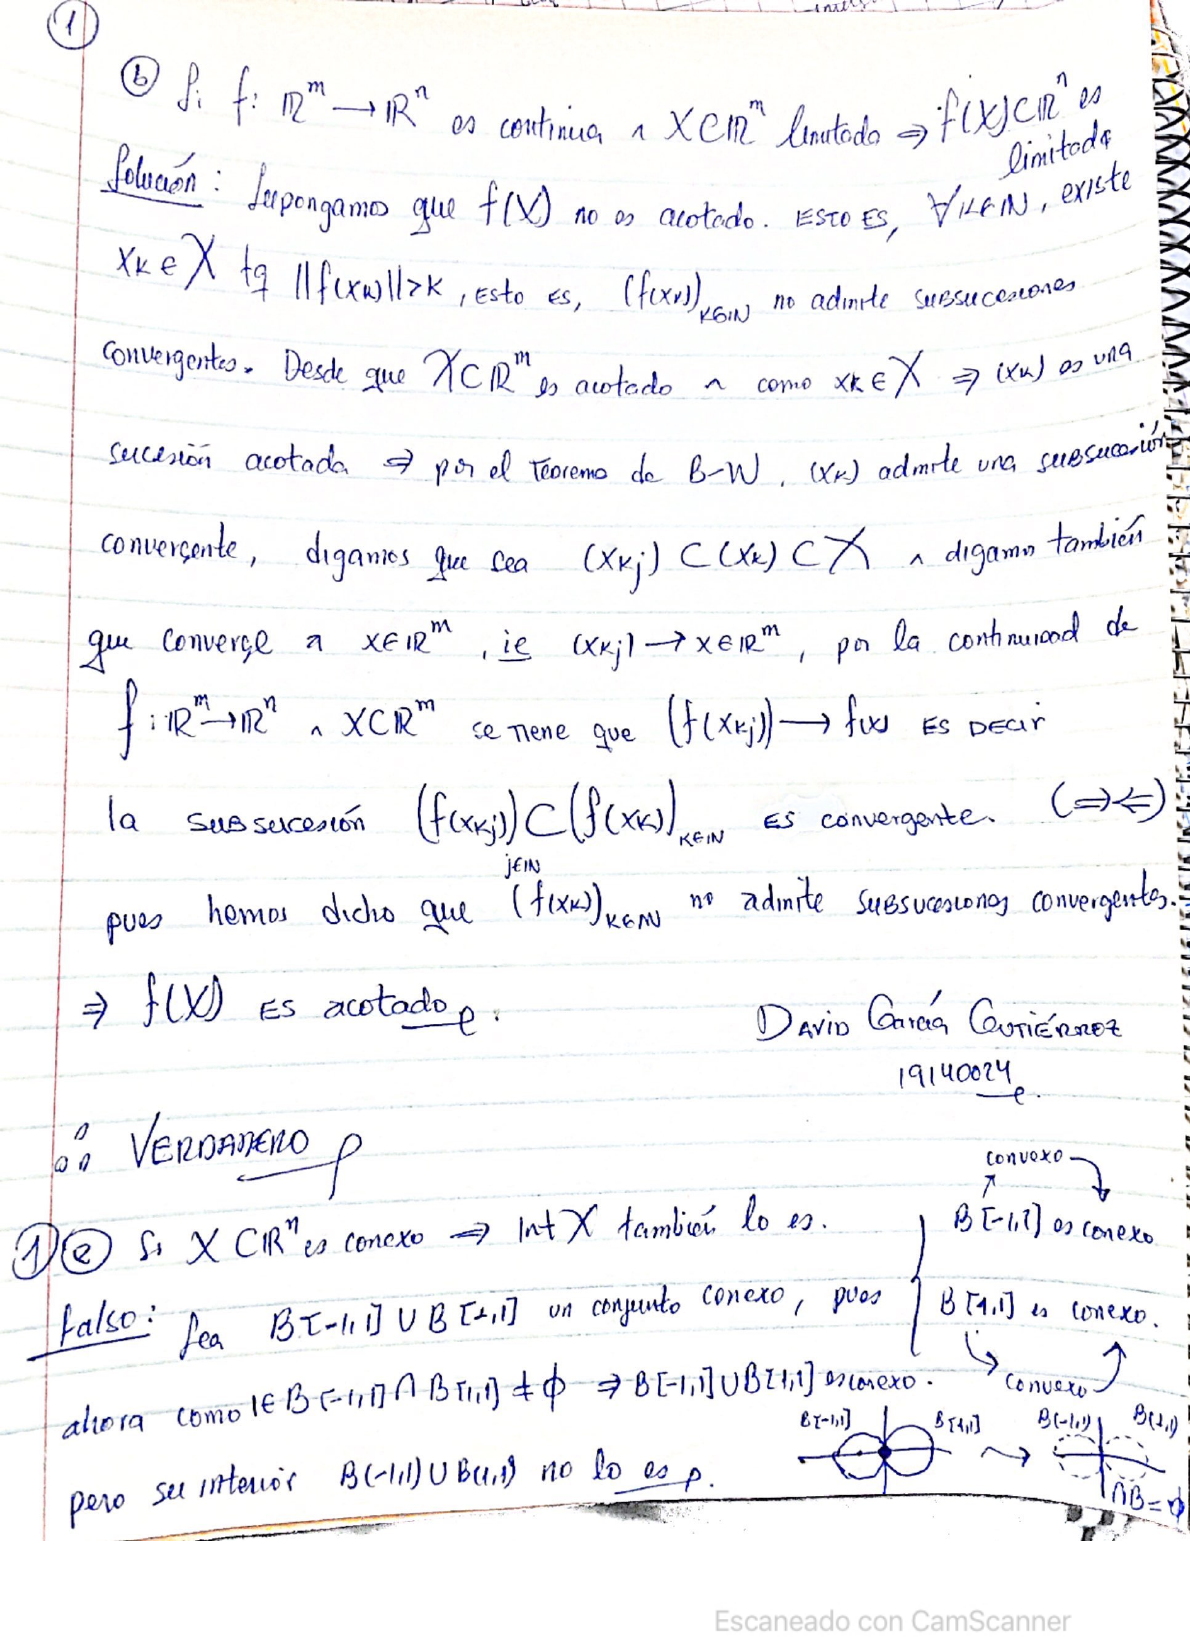 1
b Si f: ℝ^m → ℝ^n es continua ∧ X⊂ℝ^m limitado ⇒ f(X)⊂ℝ^n es
limitado
Solución: Supongamos que f(X) no es acotado. ESTO ES, ∀k∈ℕ, existe
x_k ∈ X tq ||f(x_k)||>k, ESTO ES, (f(x_k))_{k∈ℕ} no admite SUBSUCESIONES
convergentes. Desde que X⊂ℝ^m es acotado ∧ como x_k ∈ X ⇒ (x_k) es una
sucesión acotada ⇒ por el Teorema de B-W, (x_k) admite una SUBSUCESIÓN
convergente, digamos que sea (x_kj) ⊂ (x_k) ⊂ X ∧ digamos también
que converge a x∈ℝ^m, ie (x_kj) → x∈ℝ^m, por la continuidad de
f: ℝ^m→ℝ^n ∧ X⊂ℝ^m se tiene que (f(x_kj)) → f(x) ES DECIR
la SUBSUCESIÓN (f(x_kj))_{j∈ℕ} ⊂ (f(x_k))_{k∈ℕ} ES convergente. (⇒⇐)
pues hemos dicho que (f(x_k))_{k∈ℕ} no admite SUBSUCESIONES convergentes.
⇒ f(X) ES acotado.
DAVID García GUTIÉRREZ
19140024
∴ VERDADERO
1 e Si X⊂ℝ^n es conexo ⇒ Int X también lo es.
Falso: Sea B[-1,1] ∪ B[1,1] un conjunto conexo, pues
convexo
B[-1,1] es conexo
B[1,1] es conexo.
convexo
ahora como 1∈B[-1,1] ∩ B[1,1] ≠ ϕ ⇒ B[-1,1]∪B[1,1] es conexo.
pero su interior B(-1,1)∪B(1,1) no lo es.
B[-1,1] B[1,1] B(-1,1) B(1,1)
∩B=ϕ
Escaneado con CamScanner